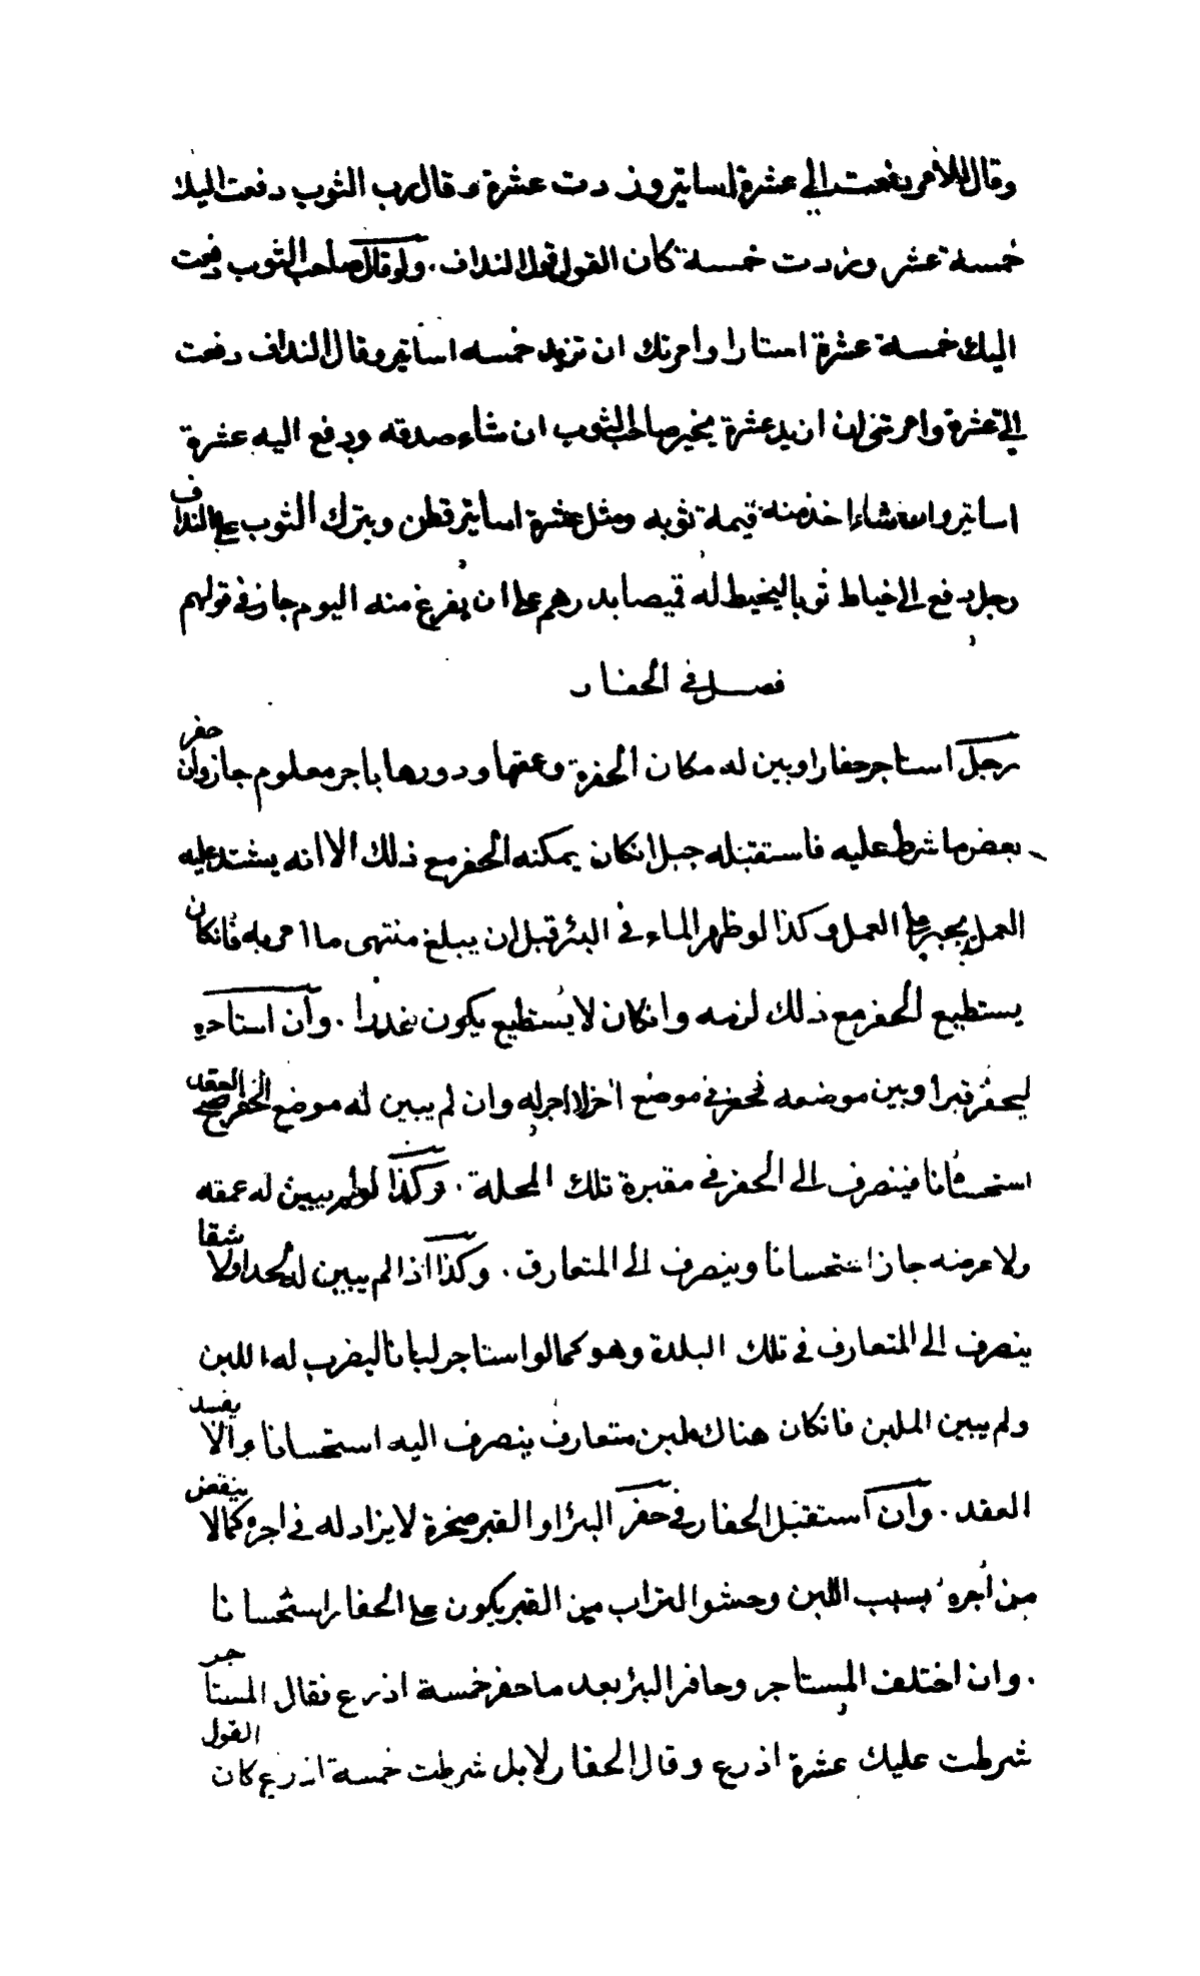 وقال للآمر دفعت الي عشرة اساتير وزدت عشرة وقال رب الثوب دفعت اليك
خمسة عشر وزدت خمسة كان القول قول النداف . ولو قال صاحب الثوب دفعت
اليك خمسة عشرة استارا وامرتك ان تزيد خمسه اساتير وقال النداف دفعت
الي عشرة وامرتني ان ازيد عشرة يخير صاحب الثوب ان شاء صدقه ودفع اليه عشرة
اساتير وان شاء اخذ منه قيمة ثوبه ومثل عشرة اساتير قطن ويترك الثوب على النداف
رجل دفع الى خياط ثوبا ليخيط له قميصا بدرهم على ان يفرغ منه اليوم جاز في قولهم
فصل في الحفار
رجل استاجر حفارا وبين له مكان الحفرة وعمقها ودورها باجر معلوم جاز وان حفر
بعض ما شرط عليه فاستقبله جبل انكان يمكنه الحفر مع ذلك الا انه يشتد عليه
العمل يجبر على العمل وكذا لو ظهر الماء في البئر قبل ان يبلغ منتهى ما امر به فانكان
يستطيع الحفر مع ذلك لزمه وانكان لا يستطيع يكون عذرا . وان استاجره
ليحفر قبرا وبين موضعه فحفر في موضع اخر لا اجر له وان لم يبين له موضع الحفر صح العقد
استحسانا فينصرف الى الحفر في مقبرة تلك المحلة . وكذا لو لم يبين له عمقه
ولا عرضه جاز استحسانا وينصرف الى المتعارف . وكذا اذا لم يبين له لحدا ولا شقا
ينصرف الى المتعارف في تلك البلدة وهو كما لو استاجر لبانا ليضرب له اللبن
ولم يبين الملبن فانكان هناك ملبن متعارف ينصرف اليه استحسانا والا يفسد
العقد . وان استقبل الحفار في حفر البئر او القبر صخرة لا يزاد له في اجره كما لا ينقض
من اجره بسبب اللين وحشو التراب من القبر يكون على الحفار استحسانا
. وان اختلف المستاجر وحافر البئر بعد ما حفر خمسة اذرع فقال المستاجر
شرطت عليك عشرة اذرع وقال الحفار لا بل شرطت خمسة اذرع كان القول